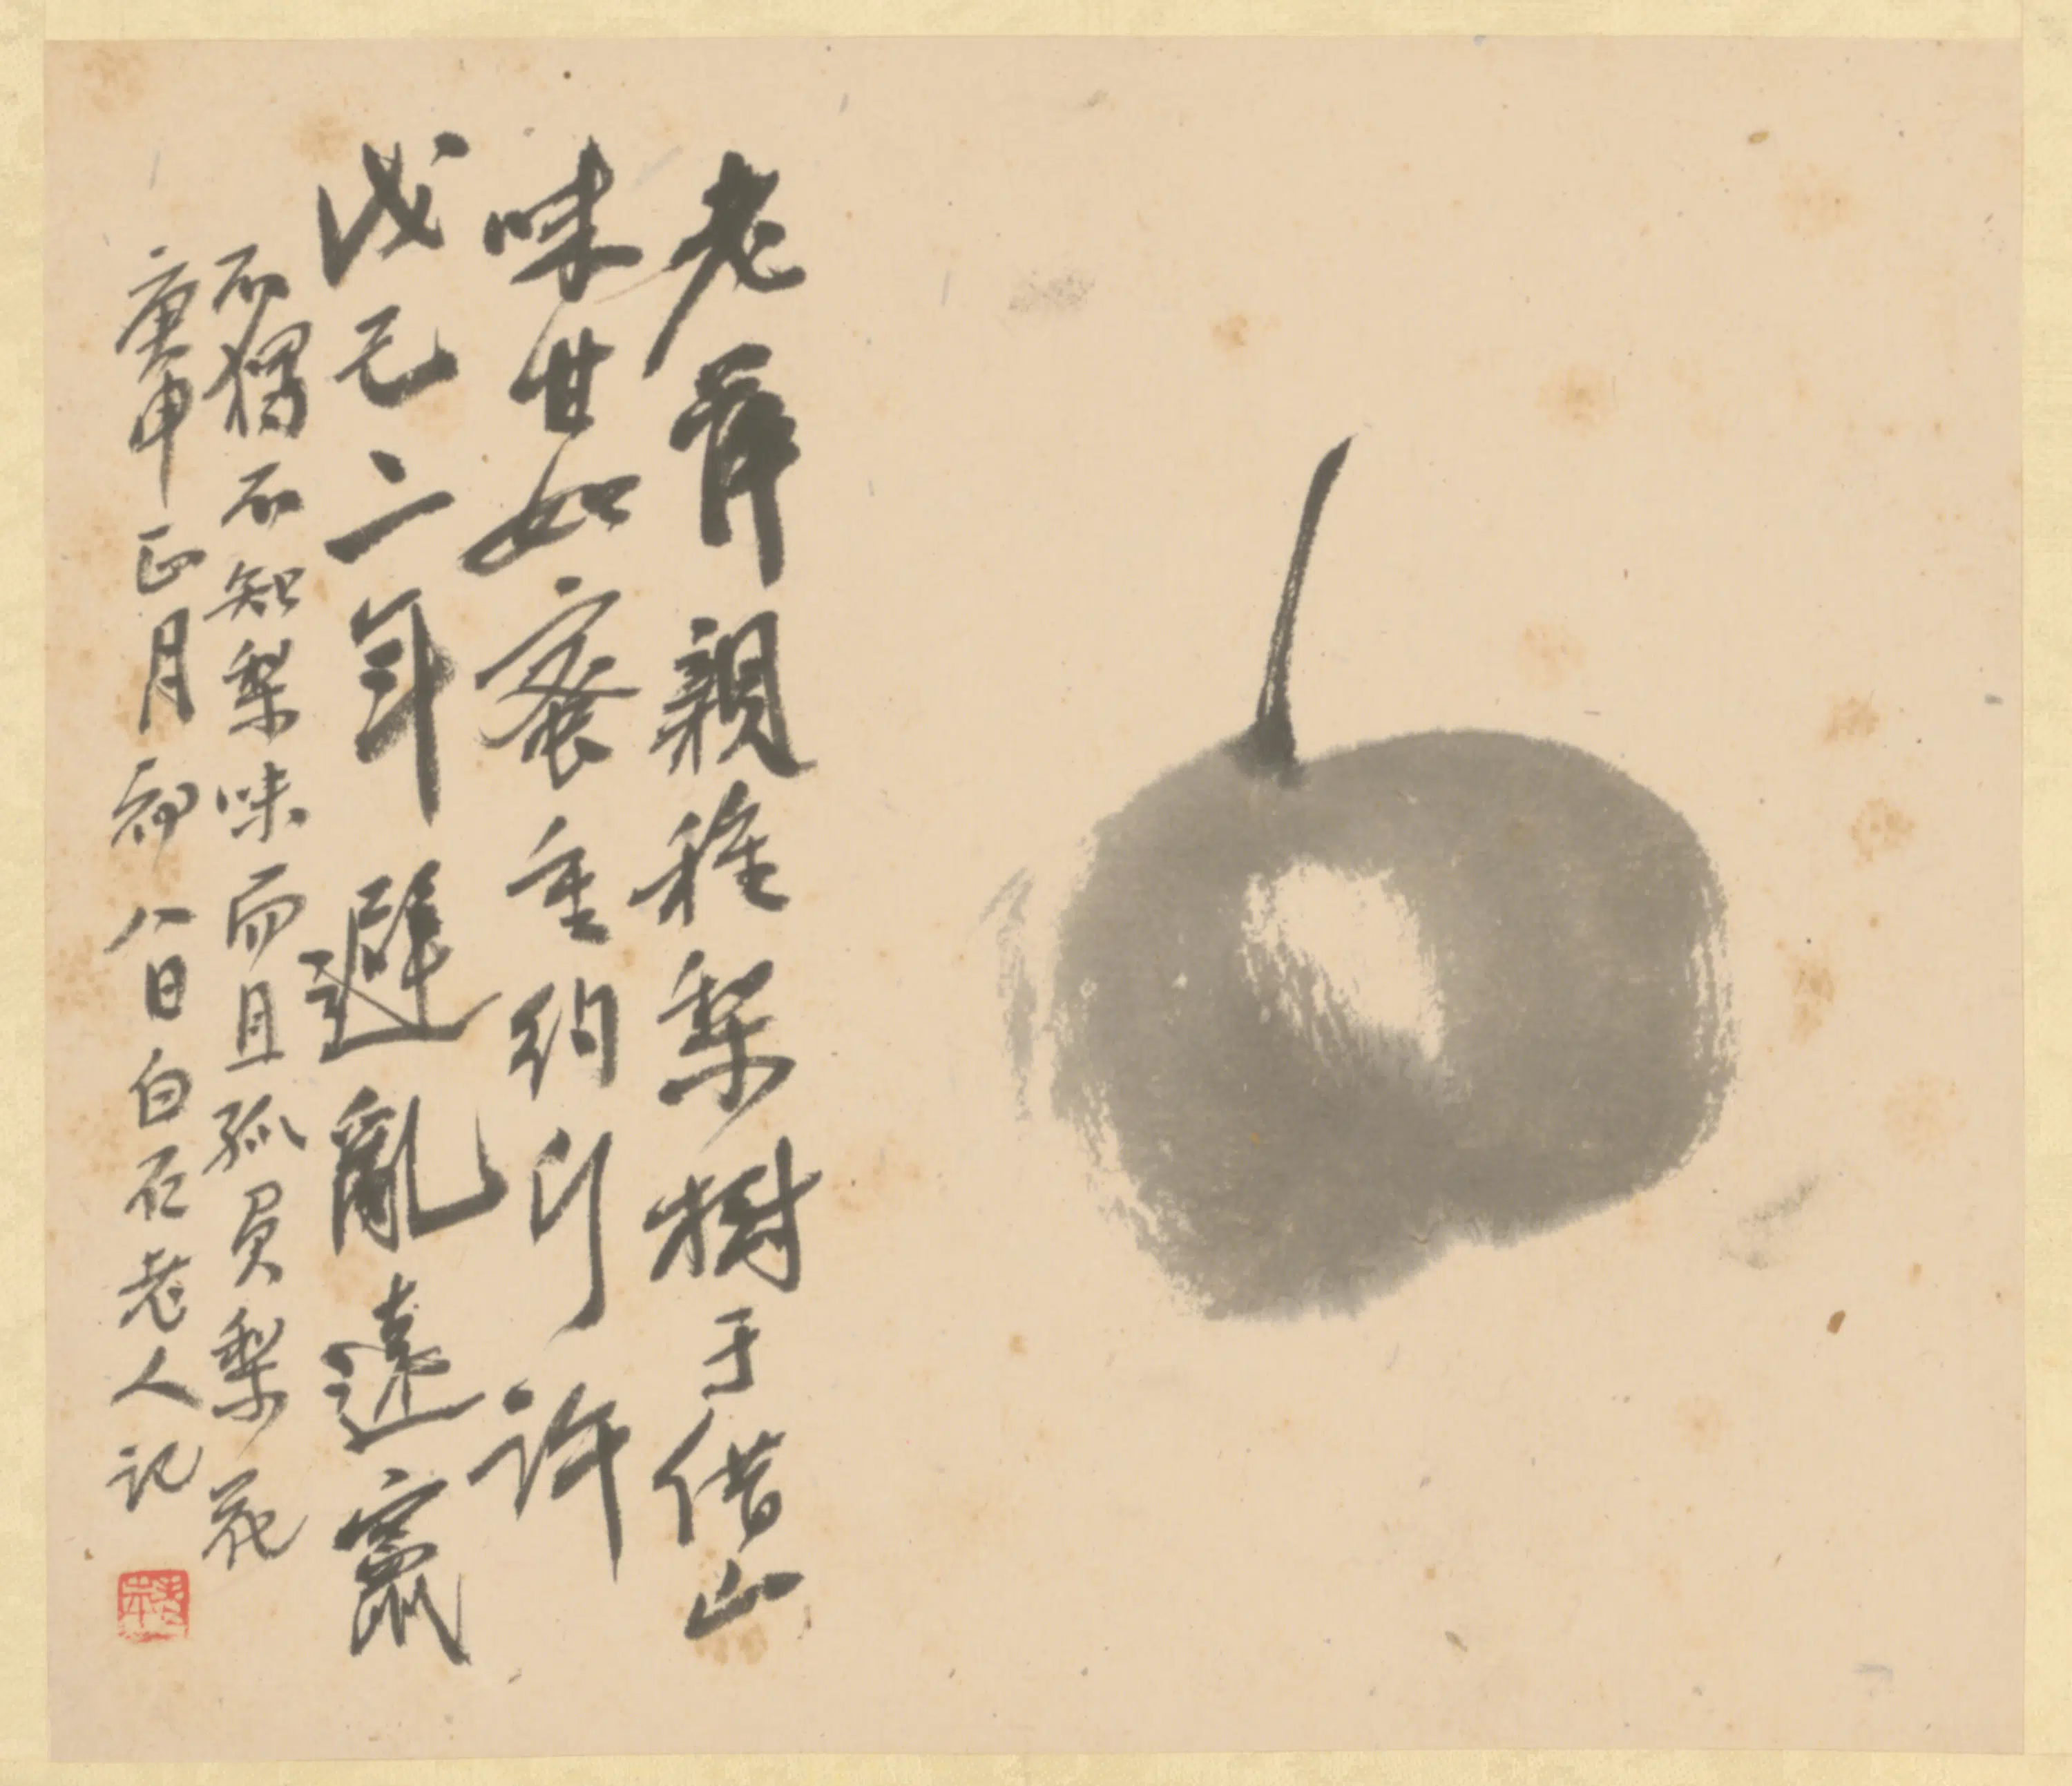 老萍親種梨樹于借山
味甘如蜜重約斤許
戊己二年避亂遠竄
不獨不知梨味而且孤負梨花
庚申正月初八日白石老人記